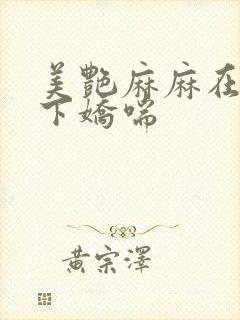 美艷麻麻在
下嬌喘
黃宗澤